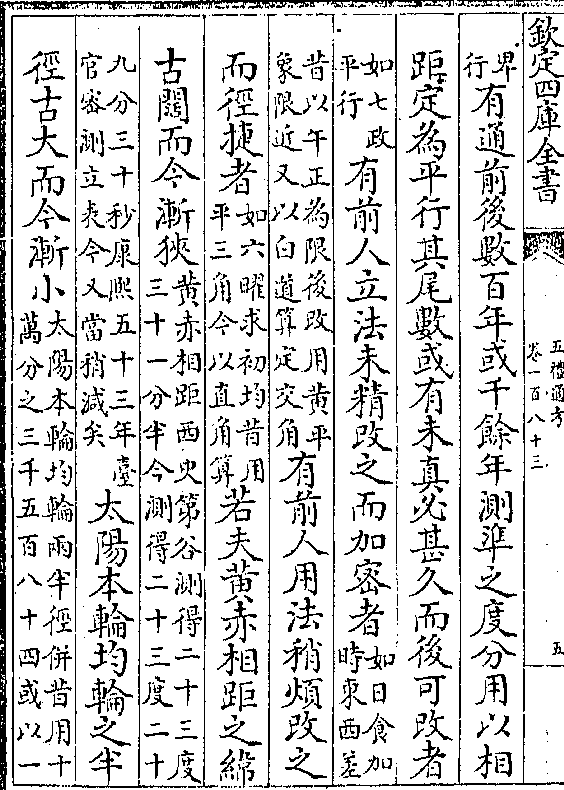 欽定四庫全書
五禮通考
卷一百八十三
五
卑行
有通前後數百年或千餘年測準之度分用以相
距定為平行其尾數或有未真必甚久而後可改者
如七政
平行
有前人立法未精改之而加密者
如日食加
時東西差
昔以午正為限後改用黄平
象限近又以白道算定交角
有前人用法稍煩改之
而徑捷者
如六曜求初均昔用
平三角今以直角算
若夫黄赤相距之緯
古闊而今漸狹
黄赤相距西史第谷測得二十三度
三十一分半今測得二十三度二十
九分三十秒康熙五十三年臺
官審測立表今又當稍減矣
太陽本輪均輪之半
徑古大而今漸小
太陽本輪均輪兩半徑併昔用十
萬分之三千五百八十四或以一